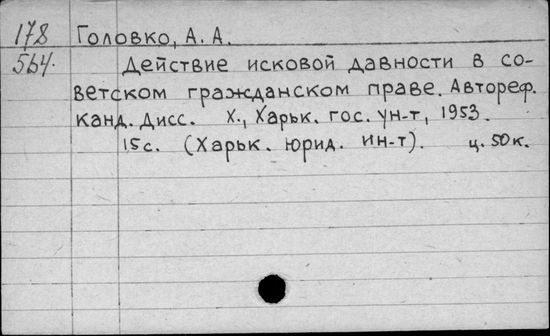 178 Головко, А. А.
564. Действие исковой давности в со-
ветском гражданском праве. Автореф.
канд. дисс. Х., Харьк. гос. ун-т, 1953.
15с. (Харьк. юрид. ин-т). ц. 50к.